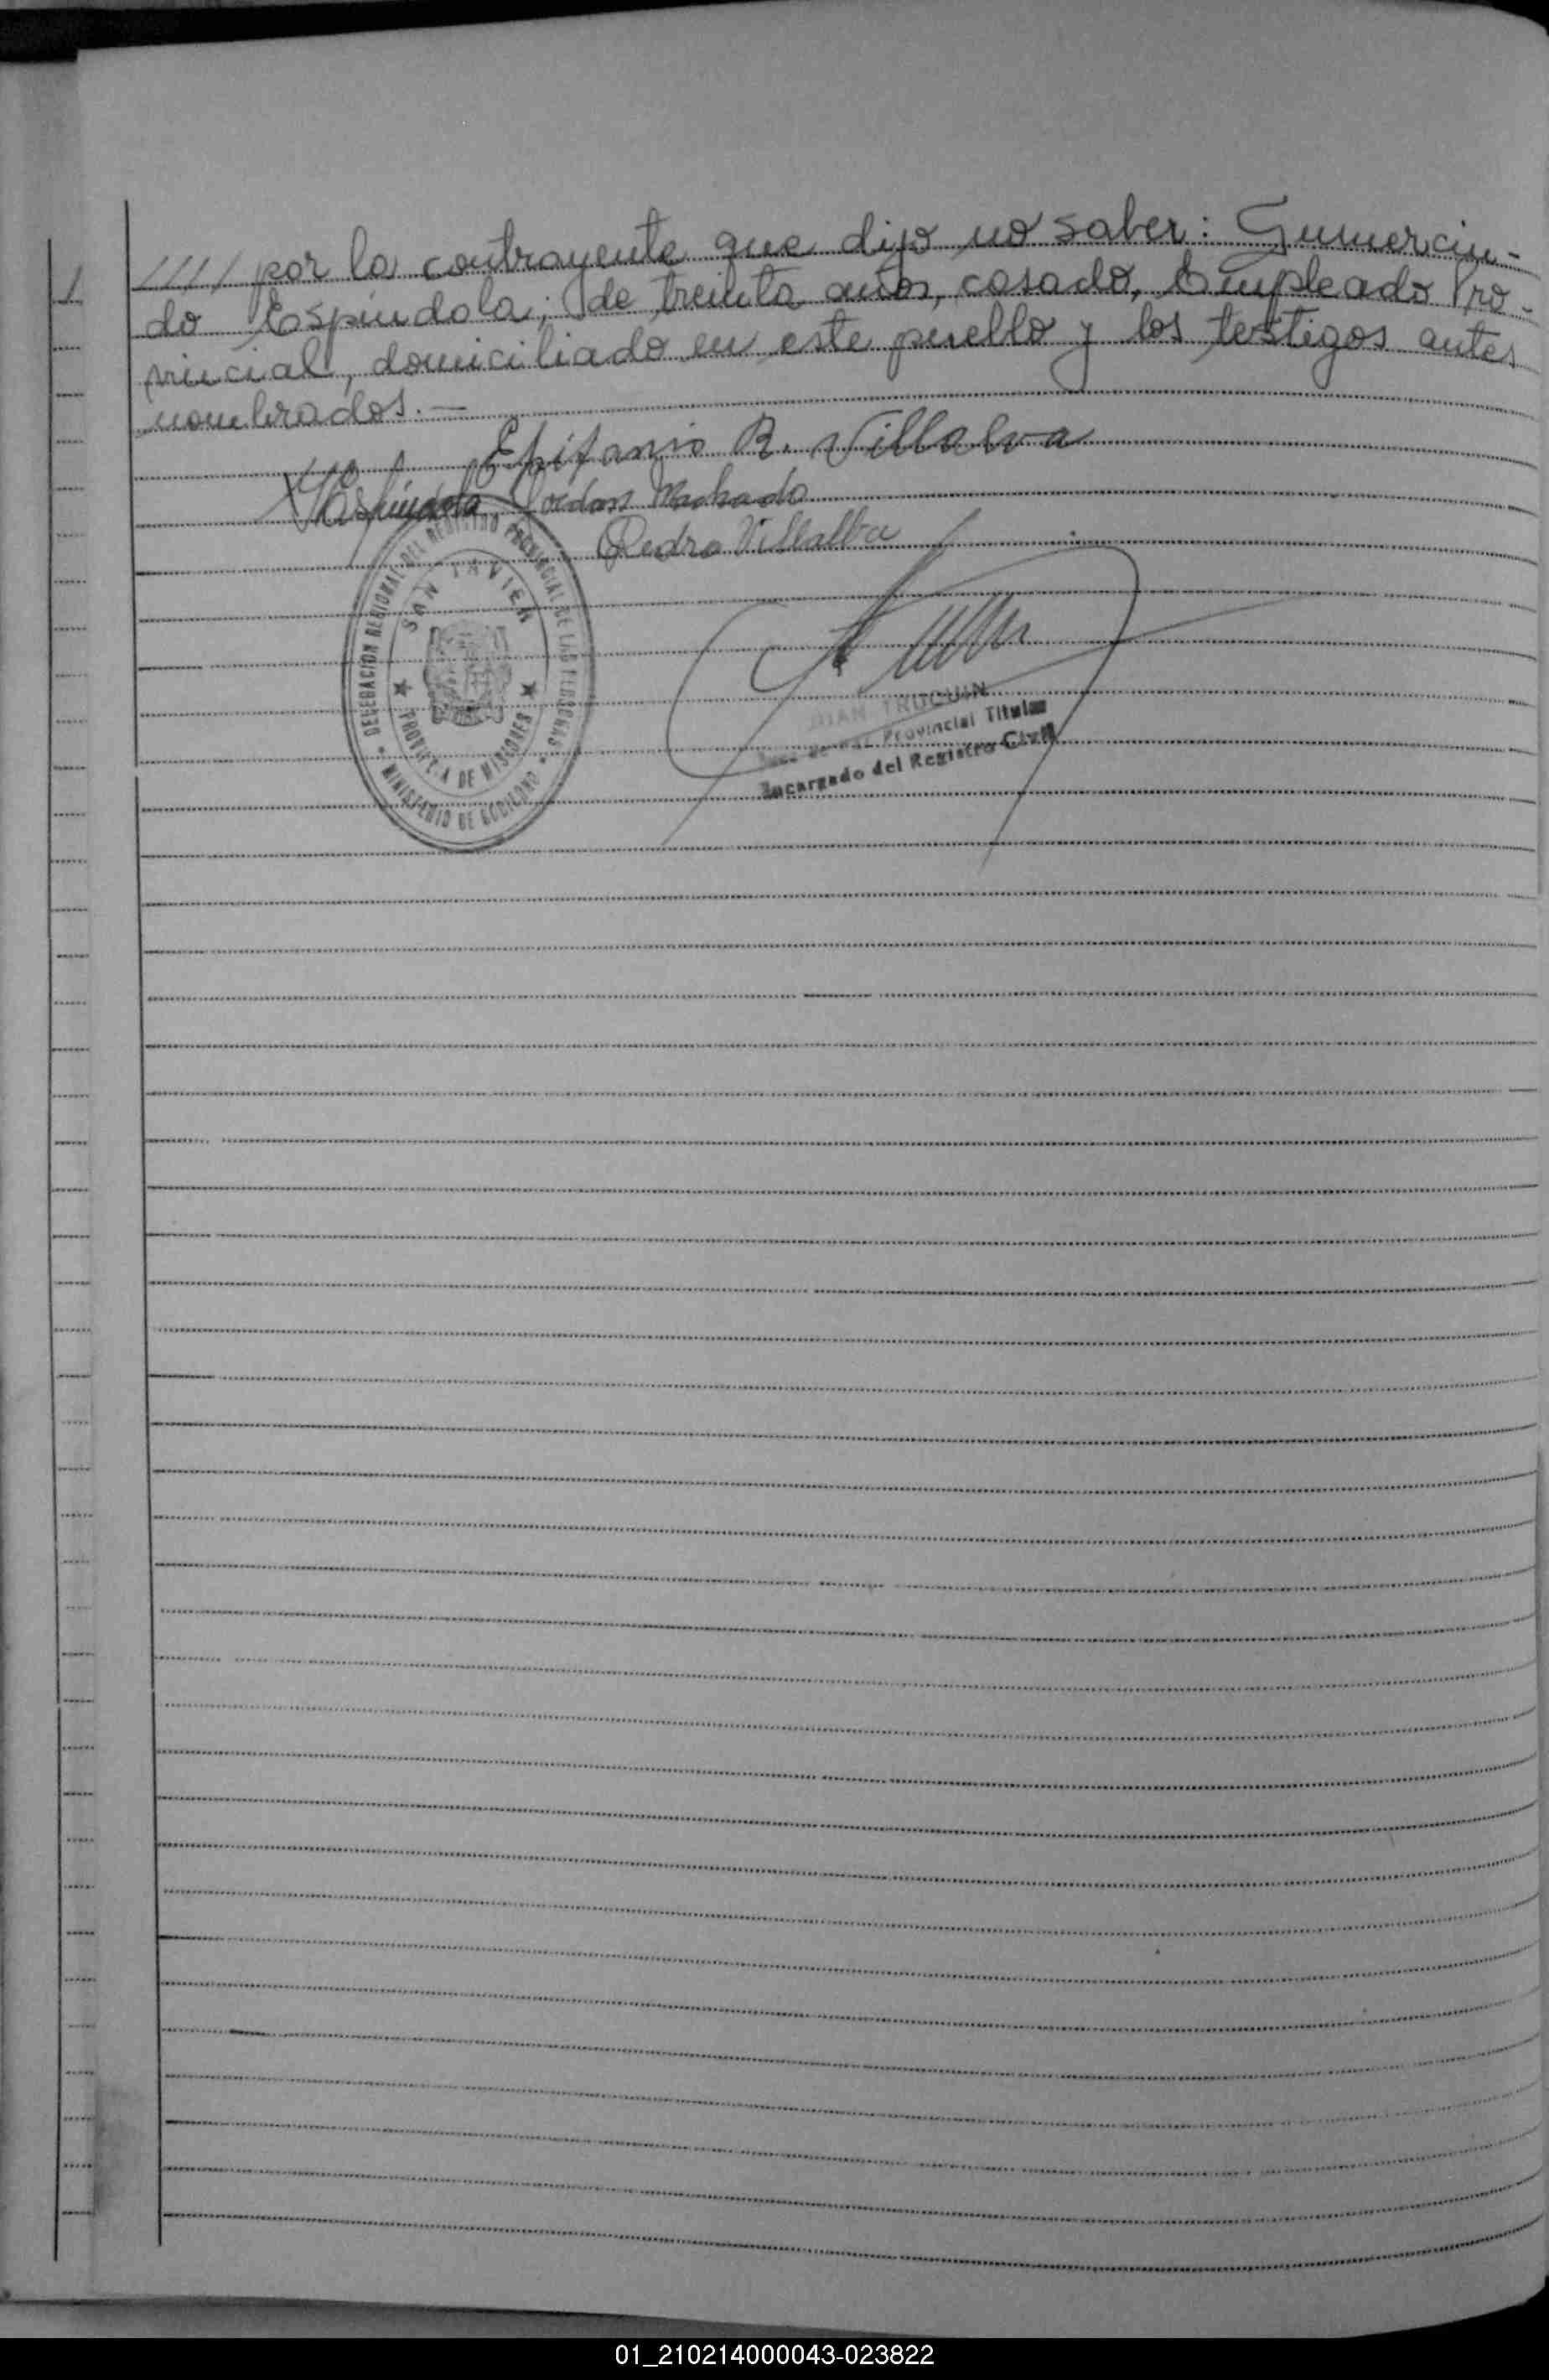 //// por la contrayente que dijo no saber: Gumercin-
do Espíndola; de treinta años, casado, Empleado Pro-
vincial, domiciliado en este pueblo y los testigos antes
nombrados.—
Epifanio R. Villalva
Espíndola Machado
Pedro Villalba
DELEGACION REGIONAL DEL REGISTRO PROVINCIAL DE LAS PERSONAS
SAN JAVIER
PROVINCIA DE MISIONES
MINISTERIO DE GOBIERNO
JUAN TRUCUIN
Juez de Paz Provincial Titular
Encargado del Registro Civil
01_210214000043-023822